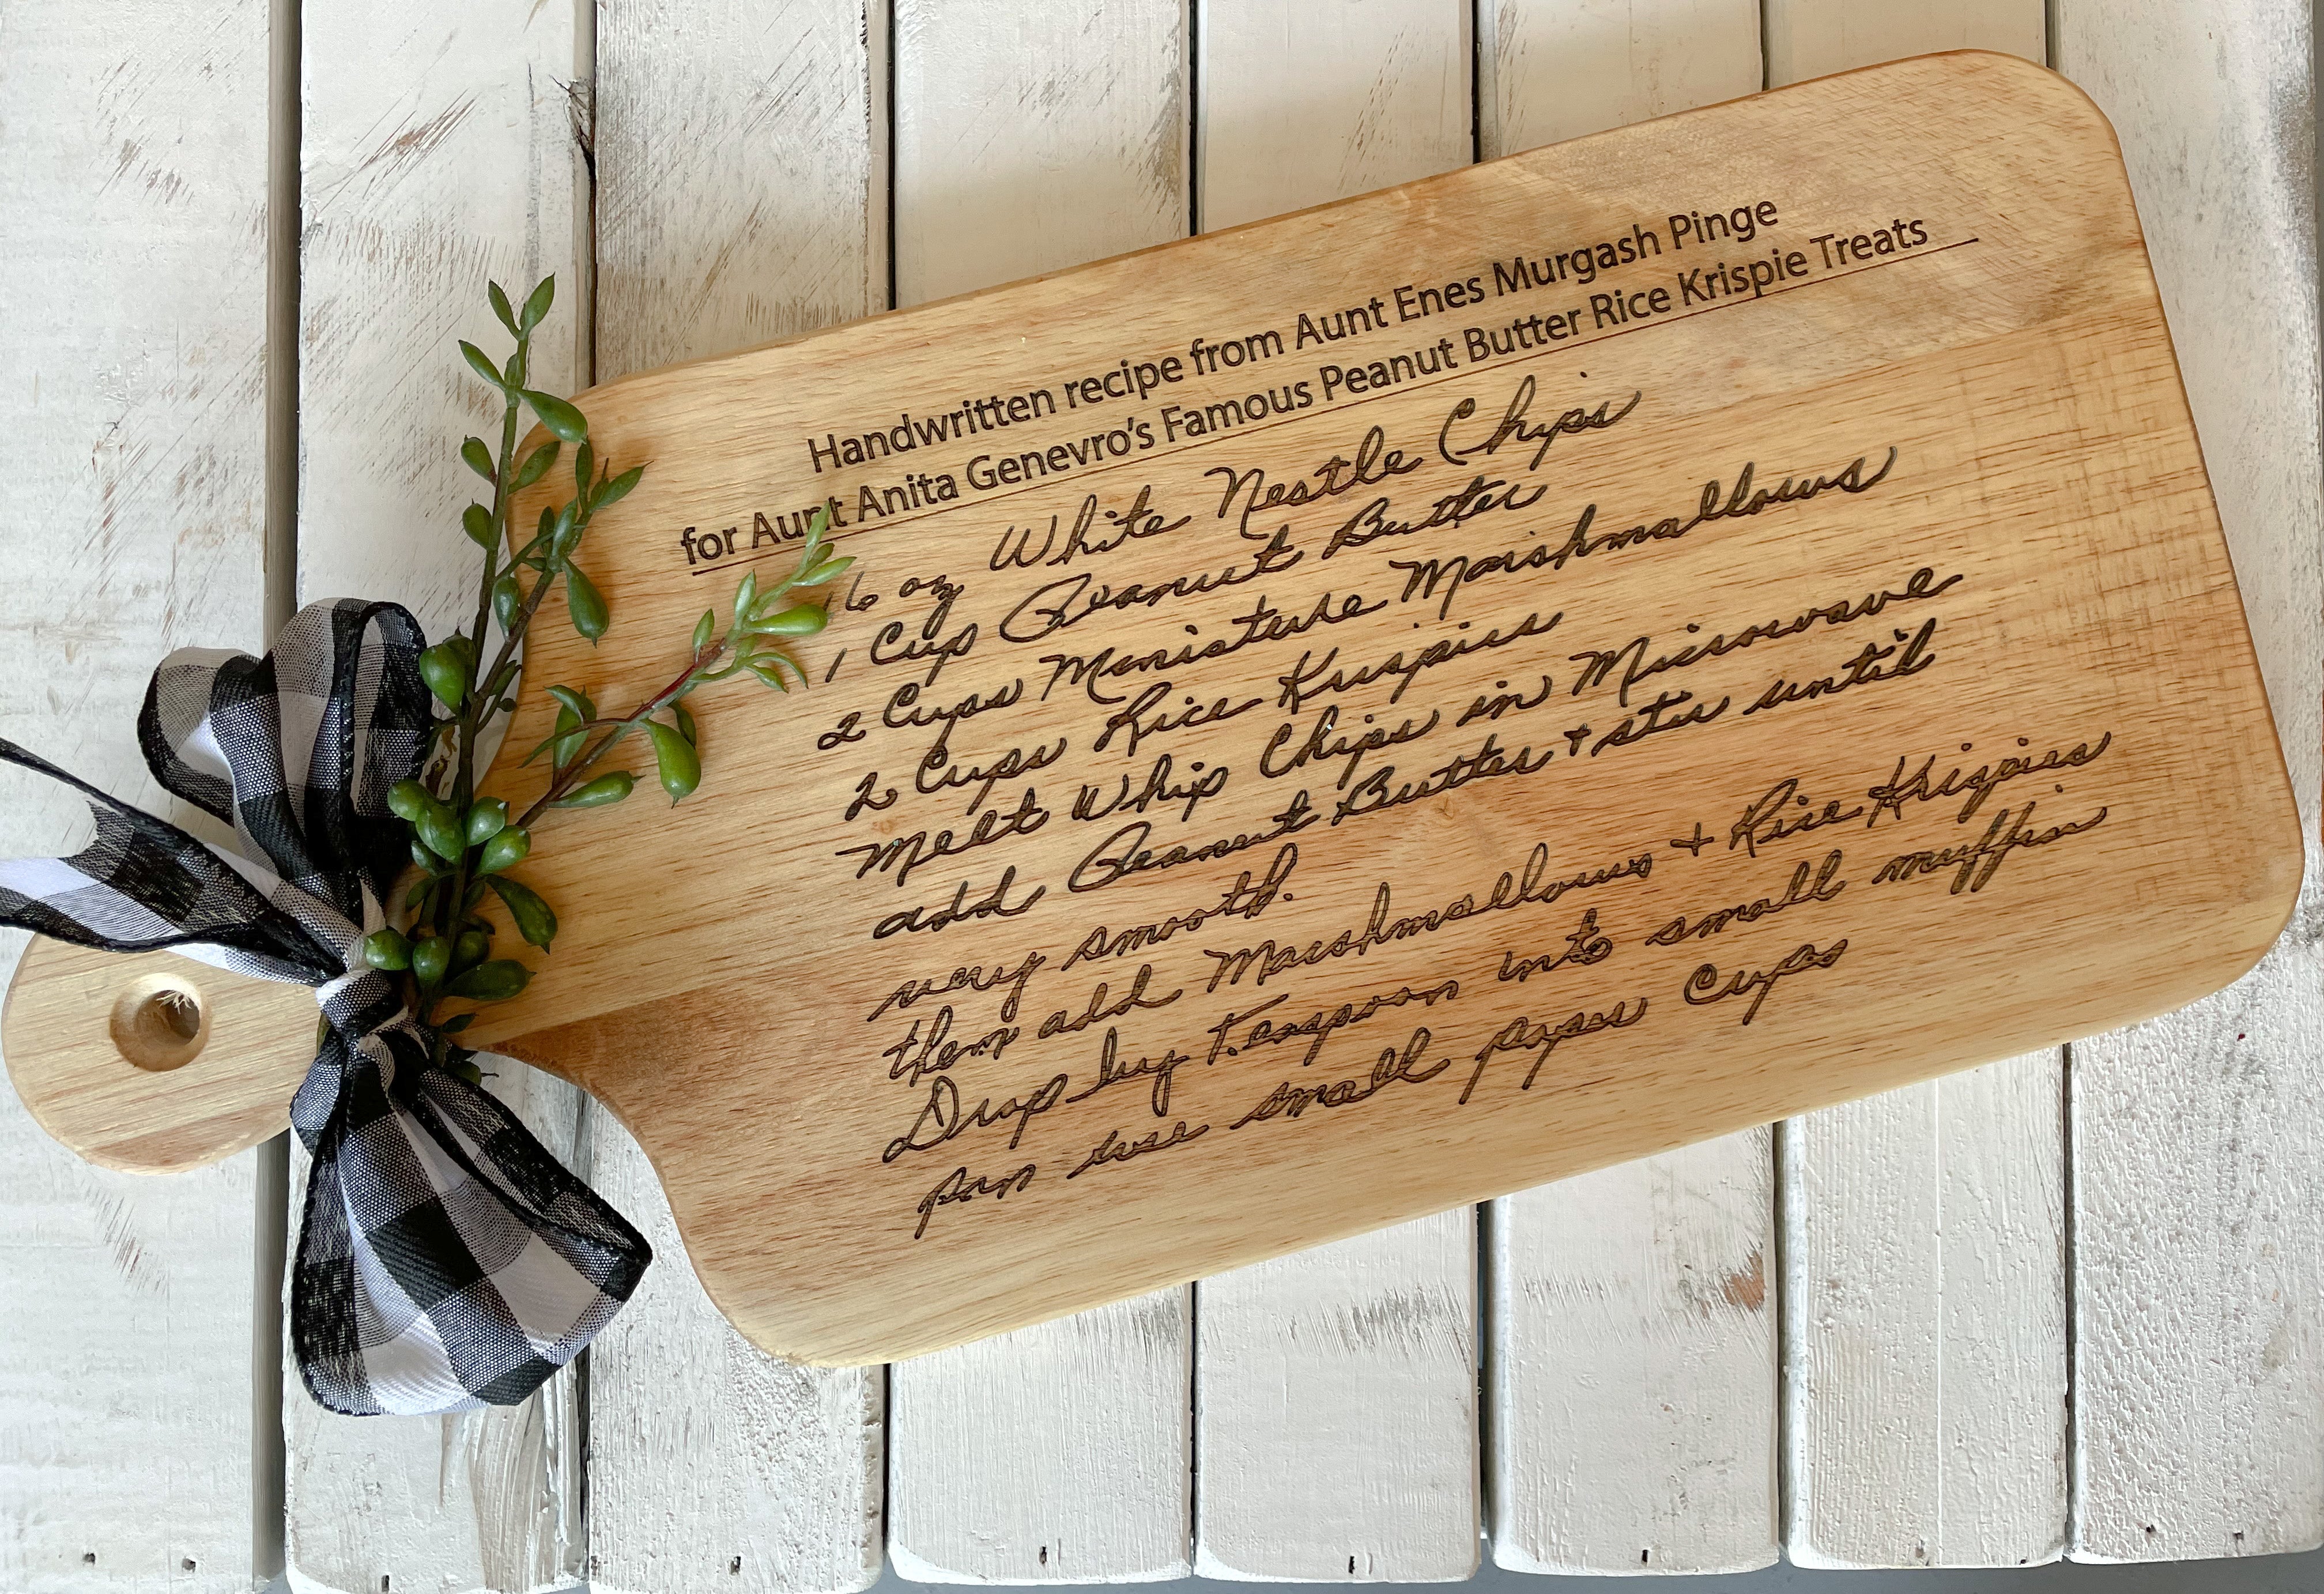 Handwritten recipe from Aunt Enes Murgash Pinge
for Aunt Anita Genevro's Famous Peanut Butter Rice Krispie Treats
16 oz White Nestle Chips
1 Cup Peanut Butter
2 Cups Miniature Marshmallows
2 Cups Rice Krispies
Melt Whip Chips in Microwave
add Peanut Butter + stir until
very smooth.
then add Marshmallows + Rice Krispies
Drop by Teaspoon into small muffin
pan use small paper Cups